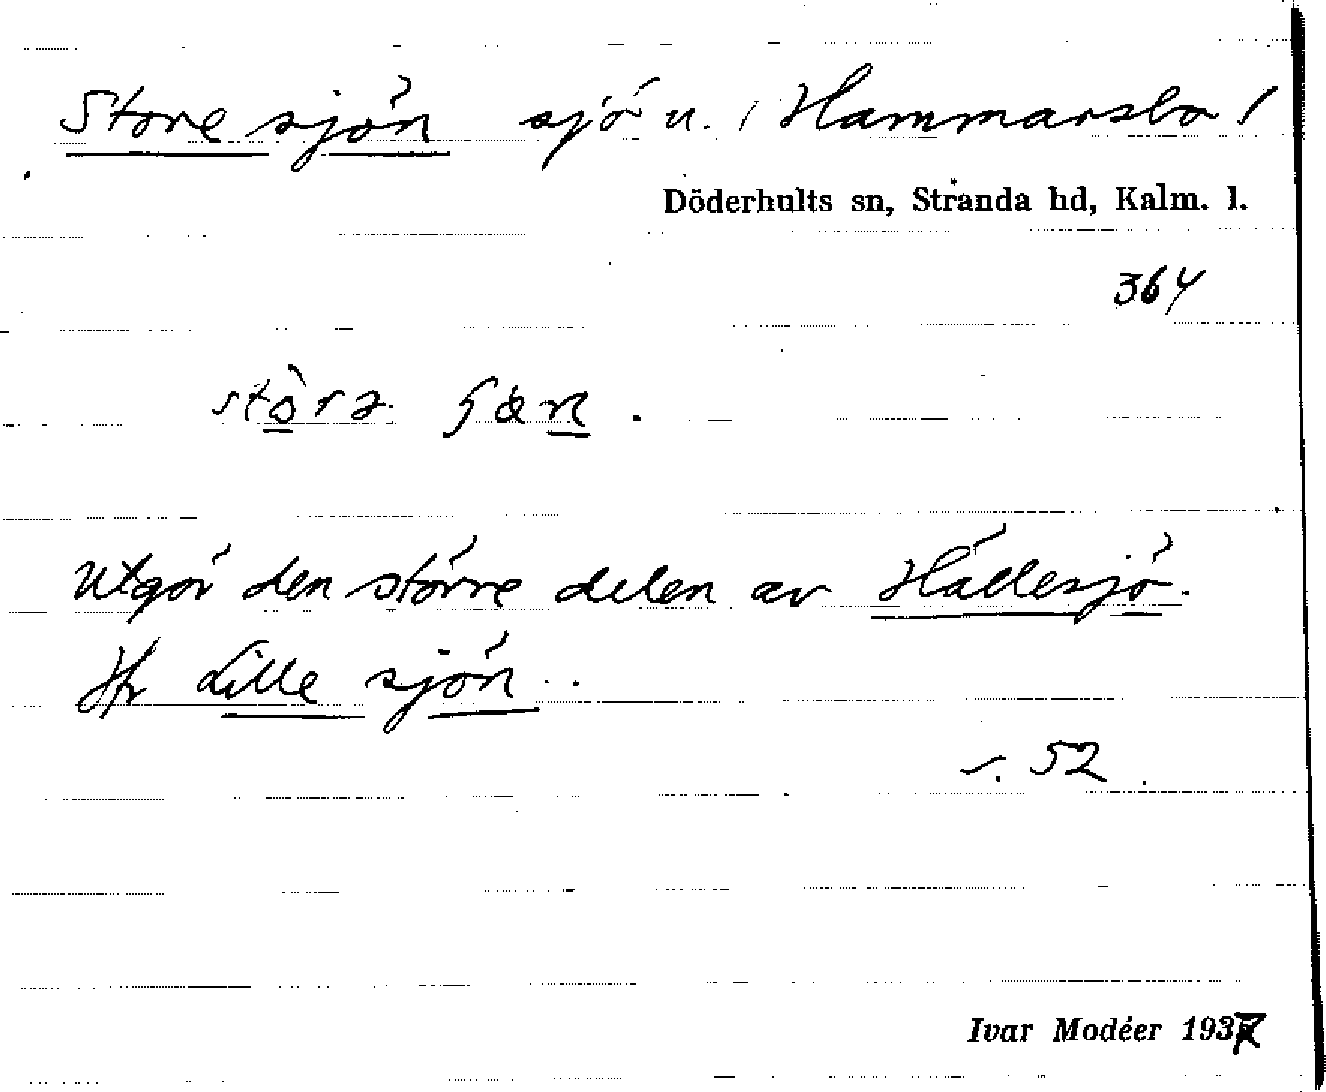 Store sjön sjö u. (Hammarsbo)
Döderhults sn, Stranda hd, Kalm. l.
364
Utgör den större delen av Hällesjö.
Jfr Lille sjön.
s. 52
Ivar Modéer 1937